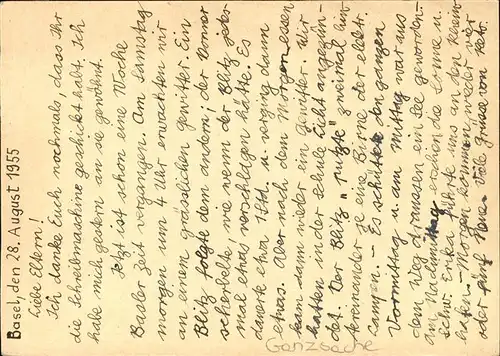 Basel, den 28. August 1955
Liebe Eltern!
Ich danke Euch nochmals, dass Ihr
die Schreibmaschine geschickt habt. Ich
habe mich gestern an sie gewöhnt.
Jetzt ist schon eine Woche
Basler Zeit vergangen. Am Samstag
morgen um 4 Uhr erwachten wir
an einem grässlichen Gewitter. Ein
Blitz folgte dem andern, der Donner
scherbelte, wie wenn der Blitz jedes
mal etwas verschlagen hätte. Es
dauerte etwa 1 Std. u. verging dann
etwas. Aber nach dem Morgenessen
kam dann wieder ein Gewitter. Wir
hatten in der Schule Licht angezün-
det. Der Blitz "putzte" zweimal hin-
tereinander je eine Birne der elektr.
Lampen. – Es schüttete den ganzen
Vormittag u. am Mittag war aus
dem Weg draussen ein See geworden.
Am Nachmittag erschien die Sonne u.
Schw. Erika führte uns an den Rhein-
hafen. – Morgen kommen wieder vier
oder fünf Neue. Viele Grüsse von
Ganzsache